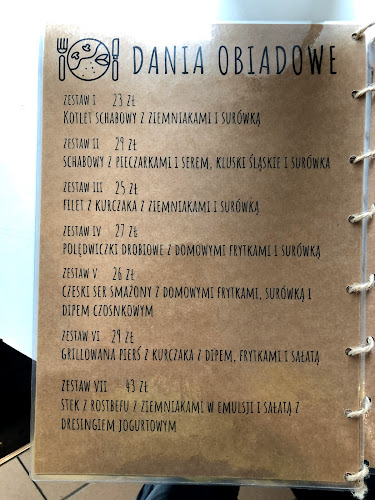 DANIA OBIADOWE
ZESTAW I 23 ZŁ
KOTLET SCHABOWY Z ZIEMNIAKAMI I SURÓWKĄ
ZESTAW II 29 ZŁ
SCHABOWY Z PIECZARKAMI I SEREM, KLUSKI ŚLĄSKIE I SURÓWKA
ZESTAW III 25 ZŁ
FILET Z KURCZAKA Z ZIEMNIAKAMI I SURÓWKĄ
ZESTAW IV 27 ZŁ
POLĘDWICZKI DROBIOWE Z DOMOWYMI FRYTKAMI I SURÓWKĄ
ZESTAW V 26 ZŁ
CZESKI SER SMAŻONY Z DOMOWYMI FRYTKAMI, SURÓWKĄ I
DIPEM CZOSNKOWYM
ZESTAW VI 29 ZŁ
GRILLOWANA PIERŚ Z KURCZAKA Z DIPEM, FRYTKAMI I SAŁATĄ
ZESTAW VII 43 ZŁ
STEK Z ROSTBEFU Z ZIEMNIAKAMI W EMULSJI I SAŁATĄ Z
DRESINGIEM JOGURTOWYM